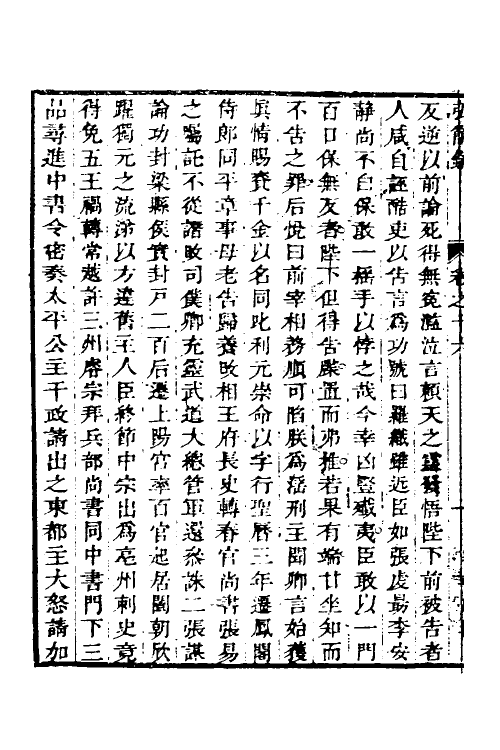 反逆以前論死得無冤濫泣言頼天之靈發悟陛下前被告者
人咸自誣酷吏以告言為功號曰羅織雖近臣如張虔勗李安
靜尚不自保敢一搖手以悖之哉今幸凶豎殲夷臣敢以一門
百口保無反者陛下但得告牒置而弗推若果有端甘坐知而
不告之罪后悅曰前宰相務順可陷朕為淫刑主聞卿言始獲
真情賜賚千金以名同叱利元崇命以字行聖曆三年遷鳳閣
侍郎同平章事母老告歸養改相王府長史轉春官尚書張易
之囑託不從譖改司僕卿充靈武道大總管軍還參誅二張謀
論功封梁縣侯實封戶二百后遷上陽宮率百官起居闔朝欣
躍獨元之流涕以方違舊主人臣終節中宗出為亳州刺史竟
得免五王禍轉常越許三州睿宗拜兵部尚書同中書門下三
品尋進中書令密奏太平公主干政請出之東都主大怒請加